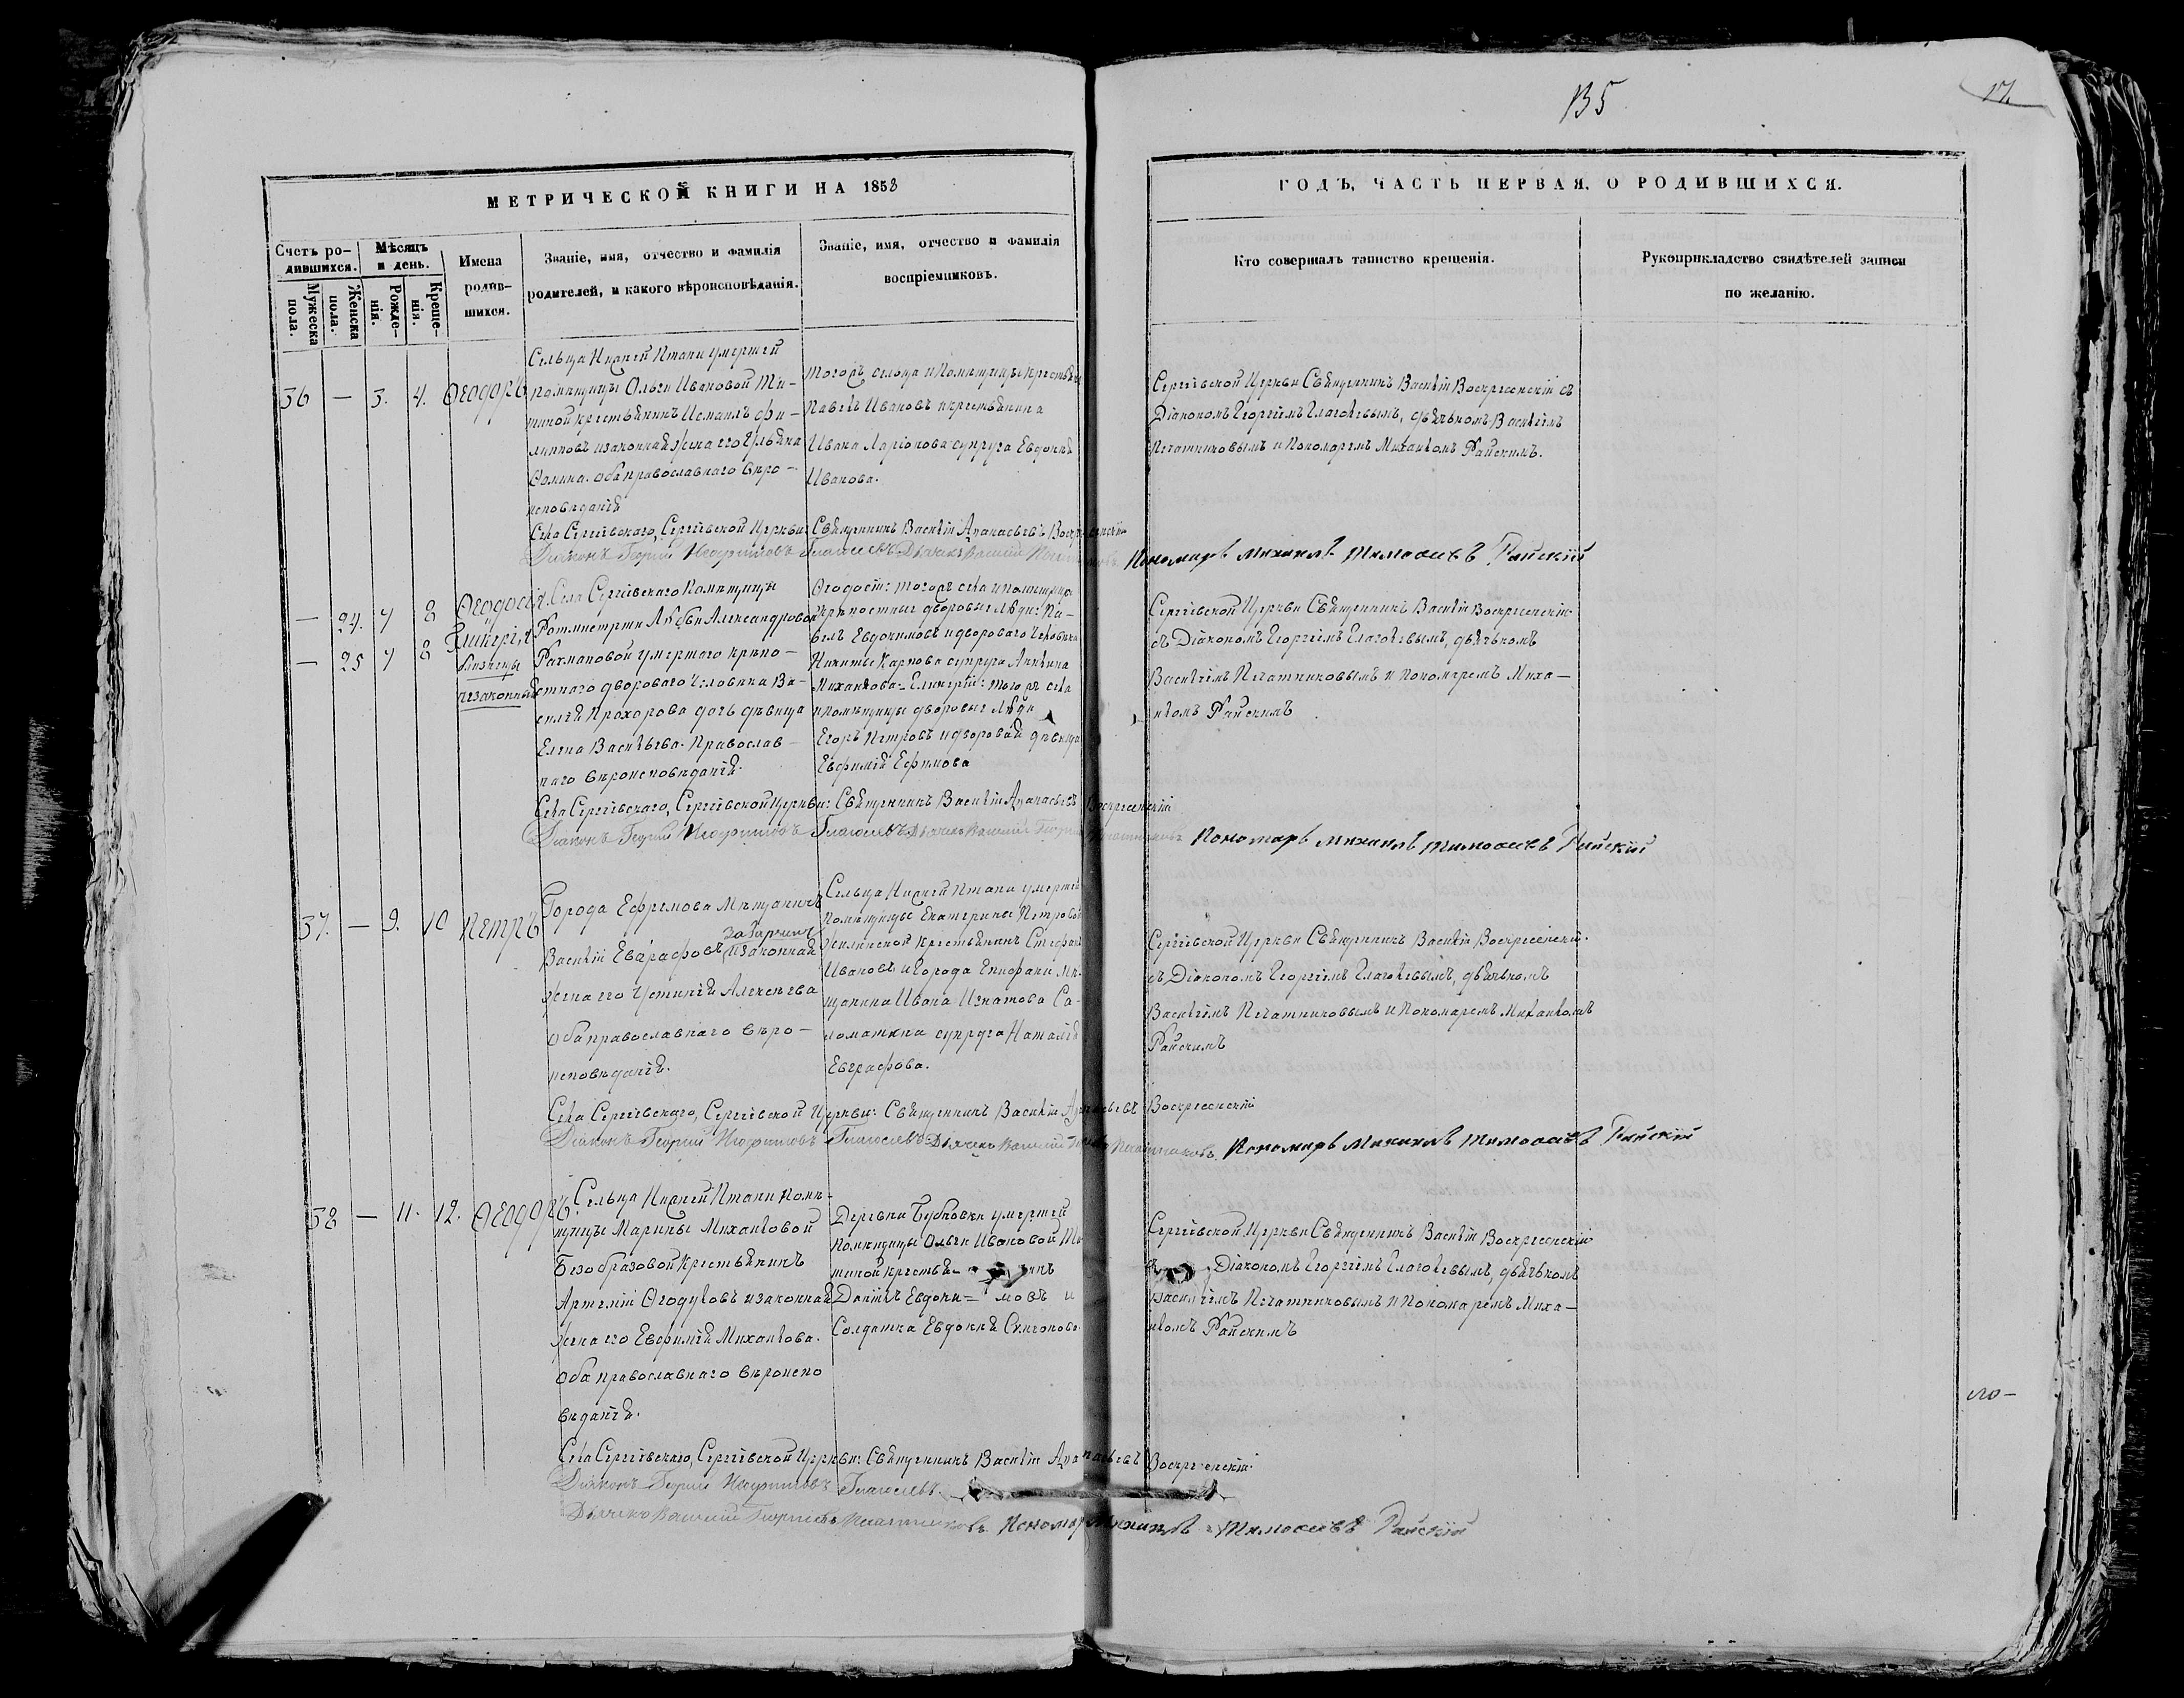 135
17
МЕТРИЧЕСКОЙ КНИГИ НА 1858
Счетъ ро-
дившихся.
Мужеска
пола.
Женска
пола.
Мѣсяцъ
и день.
Рожде-
нія.
Креще-
нія.
Имена
родив-
шихся.
Званіе, имя, отчество и фамилія
родителей, и какого вѣроисповѣданія.
Званіе, имя, отчество и фамилія
воспріемниковъ.
ГОДЪ, ЧАСТЬ ПЕРВАЯ, О РОДИВШИХСЯ.
Кто совершалъ таинство крещенія.
Рукоприкладство свидѣтелей записи
по желанію.
36 — 3. 4. Ѳеодоръ
Сельца Нижней Птани умершей
помѣщицы Ольги Ивановой
крестьянинъ
и законная жена его
Ѳомина. оба православнаго вѣро-
исповѣданія
тогожъ сельца и помѣщицы
Павелъ Ивановъ и крестьянина
Ивана Ларіонова супруга Евдокія
Иванова.
Сергіевской Церкви Священникъ Василій Воскресенскій съ
Діакономъ Георгіемъ Глаголевымъ, дьячкомъ Василіемъ
Печатниковымъ и Пономаремъ Михаиломъ Райскимъ.
Села Сергіевскаго, Сергіевской Церкви: Священникъ Василій Аѳанасьевъ Воскресенскій
Діаконъ Георгій Неофитовъ Глаголевъ Дьячекъ Василій
Пономарь Михаилъ Тимоѳеевъ Райскій
— 24. 7 8 Ѳеодосія.
— 25 7 8 Гликерія
близнецы
незаконныя
Села Сергіевскаго Помѣщицы
Ротмистрши Любви Александровой
Рахмановой умершаго крѣпо-
стнаго двороваго человѣка Ва-
силія Прохорова дочь дѣвица
Елена Васильева. Православ-
наго вѣроисповѣданія.
Ѳеодост: тогожъ села и помѣщицы
крѣпостные дворовые люди: Па-
велъ Евдокимовъ и двороваго человѣка
Никиты Карпова супруга Акилина
Михайлова. тогожъ села
и помѣщицы дворовые люди
Егоръ Петровъ и дворовая дѣвица
Евфимія Ефимова
Сергіевской Церкви Священникъ Василій Воскресенскій
съ Діакономъ Георгіемъ Глаголевымъ, дьячкомъ
Василіемъ Печатниковымъ и Пономаремъ Миха-
иломъ Райскимъ
Села Сергіевскаго, Сергіевской Церкви: Священникъ Василій Аѳанасьевъ Воскресенскій
Діаконъ Георгій Неофитовъ Глаголевъ Дьячекъ Василій Георгіевъ Печатниковъ Пономарь Михаилъ Тимоѳеевъ Райскій
37. — 9. 10 Петръ
Города Ефремова Мѣщанинъ
Василій Евграфовъ и законная
жена его Устинія Алексѣева
оба православнаго вѣро-
исповѣданія.
Сельца Нижней Птани умершей
Помѣщицы Екатерины Петровой
крестьянинъ Стефанъ
Ивановъ и города Епифани мѣ-
щанина Ивана Игнатова Са-
ломатина супруга Наталія
Евграфова.
Сергіевской Церкви Священникъ Василій Воскресенскій
съ Діакономъ Георгіемъ Глаголевымъ, дьячкомъ
Василіемъ Печатниковымъ и Пономаремъ Михаиломъ
Райскимъ
Села Сергіевскаго, Сергіевской Церкви: Священникъ Василій Аѳанасьевъ Воскресенскій
Діаконъ Георгій Неофитовъ Глаголевъ Дьячекъ Василій Печатниковъ Пономарь Михаилъ Тимоѳеевъ Райскій
38 — 11. 12. Ѳеодоръ.
Сельца Нижней Птани Помѣ-
щицы Марины Михайловой
Безобразовой крестьянинъ
Артемій Ѳеодуловъ и законная
жена его Евфимія Михайлова.
Оба православнаго вѣроиспо
вѣданія.
Деревни Бубновки умершей
Помѣщицы Ольги Ивановой
крестья- нинъ
Даніилъ Евдоки= мовъ и
Солдатка Евдокія Симонова
Сергіевской Церкви Священникъ Василій Воскресенскій
Діакономъ Георгіемъ Глаголевымъ, дьячкомъ
Василіемъ Печатниковымъ и Пономаремъ Миха-
иломъ Райскимъ
Села Сергіевскаго, Сергіевской Церкви: Священникъ Василій Аѳанасьевъ Воскресенскій
Діаконъ Георгій Неофитовъ Глаголевъ.
Дьячекъ Василій Георгіевъ Печатниковъ Пономарь Михаилъ Тимоѳеевъ Райскій